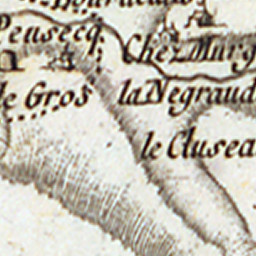 Peusecq
Chez Murg
le Gros
la Negraud
le Clusea